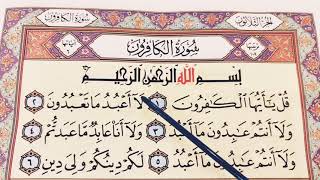 الجزء الثلاثون
سورة الكافرون
سُورَةُ الكَافِرُونَ
بِسْمِ اللَّهِ الرَّحْمَٰنِ الرَّحِيمِ
قُلْ يَٰٓأَيُّهَا ٱلْكَٰفِرُونَ ١ لَآ أَعْبُدُ مَا تَعْبُدُونَ ٢
وَلَآ أَنتُمْ عَٰبِدُونَ مَآ أَعْبُدُ ٣ وَلَآ أَنَا۠ عَابِدٌ مَّا عَبَدتُّمْ ٤
وَلَآ أَنتُمْ عَٰبِدُونَ مَآ أَعْبُدُ ٥ لَكُمْ دِينُكُمْ وَلِيَ دِينِ ٦